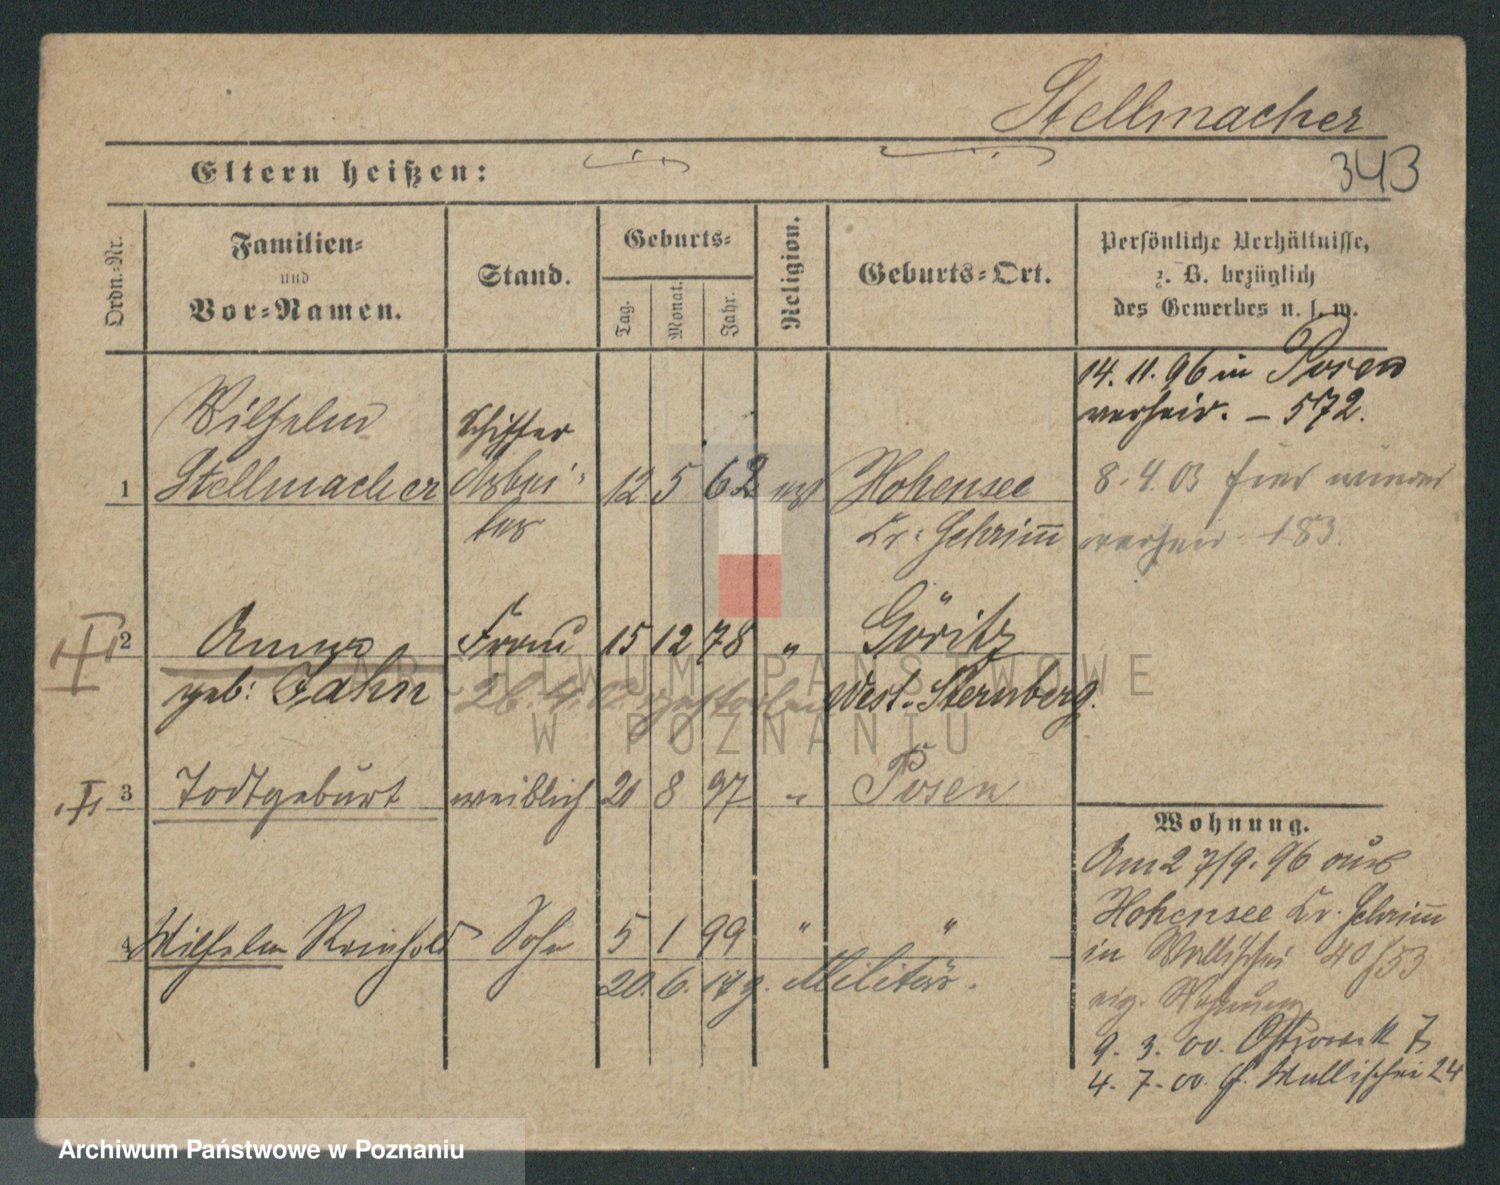 Stellmacher
343
Eltern heißen:
Ordn.-Nr.
Familien-
und
Vor-Namen.
Stand.
Geburts-
Tag.
Monat.
Jahr.
Religion.
Geburts-Ort.
Persönliche Verhältnisse,
z. B. bezüglich
des Gewerbes u. s. w.
14. 11. 96 in Posen
verheir. – 572.
8. 4. 03 hier wieder
verheir. 183.
Wilhelm
Schiffer
1 Stellmacher Arbei- 12 5 62 Hohensee
ter Kr. Schrimm
III 2 Anna Frau 15 12 78 " Göritz
geb: Jahn West-Sternberg.
gestorben
II 3 Todtgeburt weiblich 21 8 97 " Posen
4 Wilhelm Reinhold Sohn 5 1 99 " "
20. 6. Militär.
Wohnung.
Am 27/9. 96 aus
Hohensee Kr. Schrimm
in Wallischei 40/53
eig. Wohnung
9. 3. 00. Ostrowek 7
4. 7. 00. Wallischei 24
ARCHIWUM PAŃSTWOWE
W POZNANIU
Archiwum Państwowe w Poznaniu